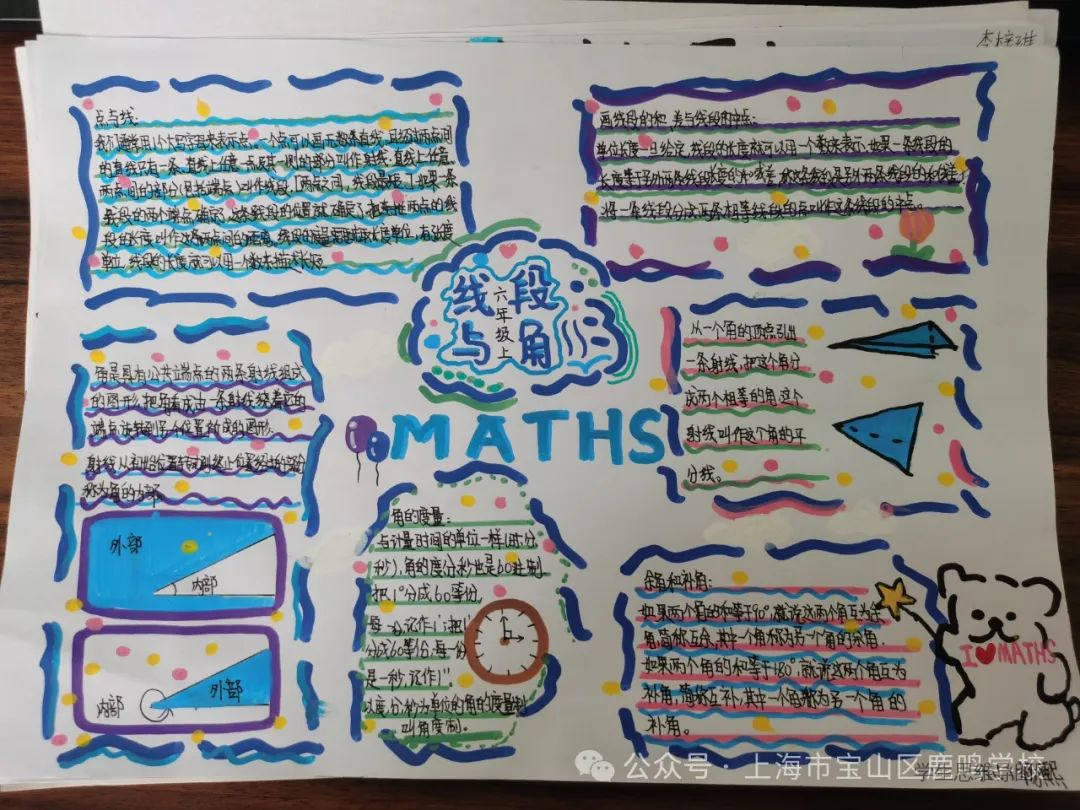 点与线:
我们通常用小大写字母来表示点,一个点可以画无数条直线,且经过两点间
的直线只有一条.直线上任意一点及其一侧的部分叫作射线.直线上任意
两点间的部分(包括端点)叫作线段.「两点之间,线段最短」如果一条
线段的两个端点确定了,这条线段的位置就确定了.把连接两点的线
段的长度叫作这两点间的距离.线段的度量要确定长度单位,有长度
单位,线段的长度就可以用一个数来描述
画线段的和、差与线段的中点:
单位长度一旦给定,线段的长度就可以用一个数来表示.如果一条线段的
长度等于另外两条线段长度的和(或差),那么这条线段是另外两条线段的和(或差)
将一条线段分成两条相等线段的点叫作这条线段的中点。
线段
与角
六年级上
MATHS
角是具有公共端点的两条射线组成
的图形,把角看成由一条射线绕着它的
端点旋转到另个位置所成的图形.
射线从初始位置转动到终止位置经过的部分
称为角的内部.
外部
内部
内部
外部
角的度量:
与计量时间的单位一样(时、分
秒),角的度分秒也是60进制
把1°分成60等份,
每一份记作1';把1'
分成60等份,每一份
是一秒,记作1".
以度、分、秒为单位的角的度量制
叫角度制.
从一个角的顶点引出
一条射线,把这个角分
成两个相等的角,这个
射线叫作这个角的平
分线。
余角和补角:
如果两个角的和等于90°,就说这两个角互为余
角,简称互余,其中一个角称为另一个角的余角.
如果两个角的和等于180°,就说这两个角互为
补角,简称互补,其中一个角称为另一个角的
补角。
I MATHS
公众号·上海市宝山区鹿鸣学校
学生思维导图